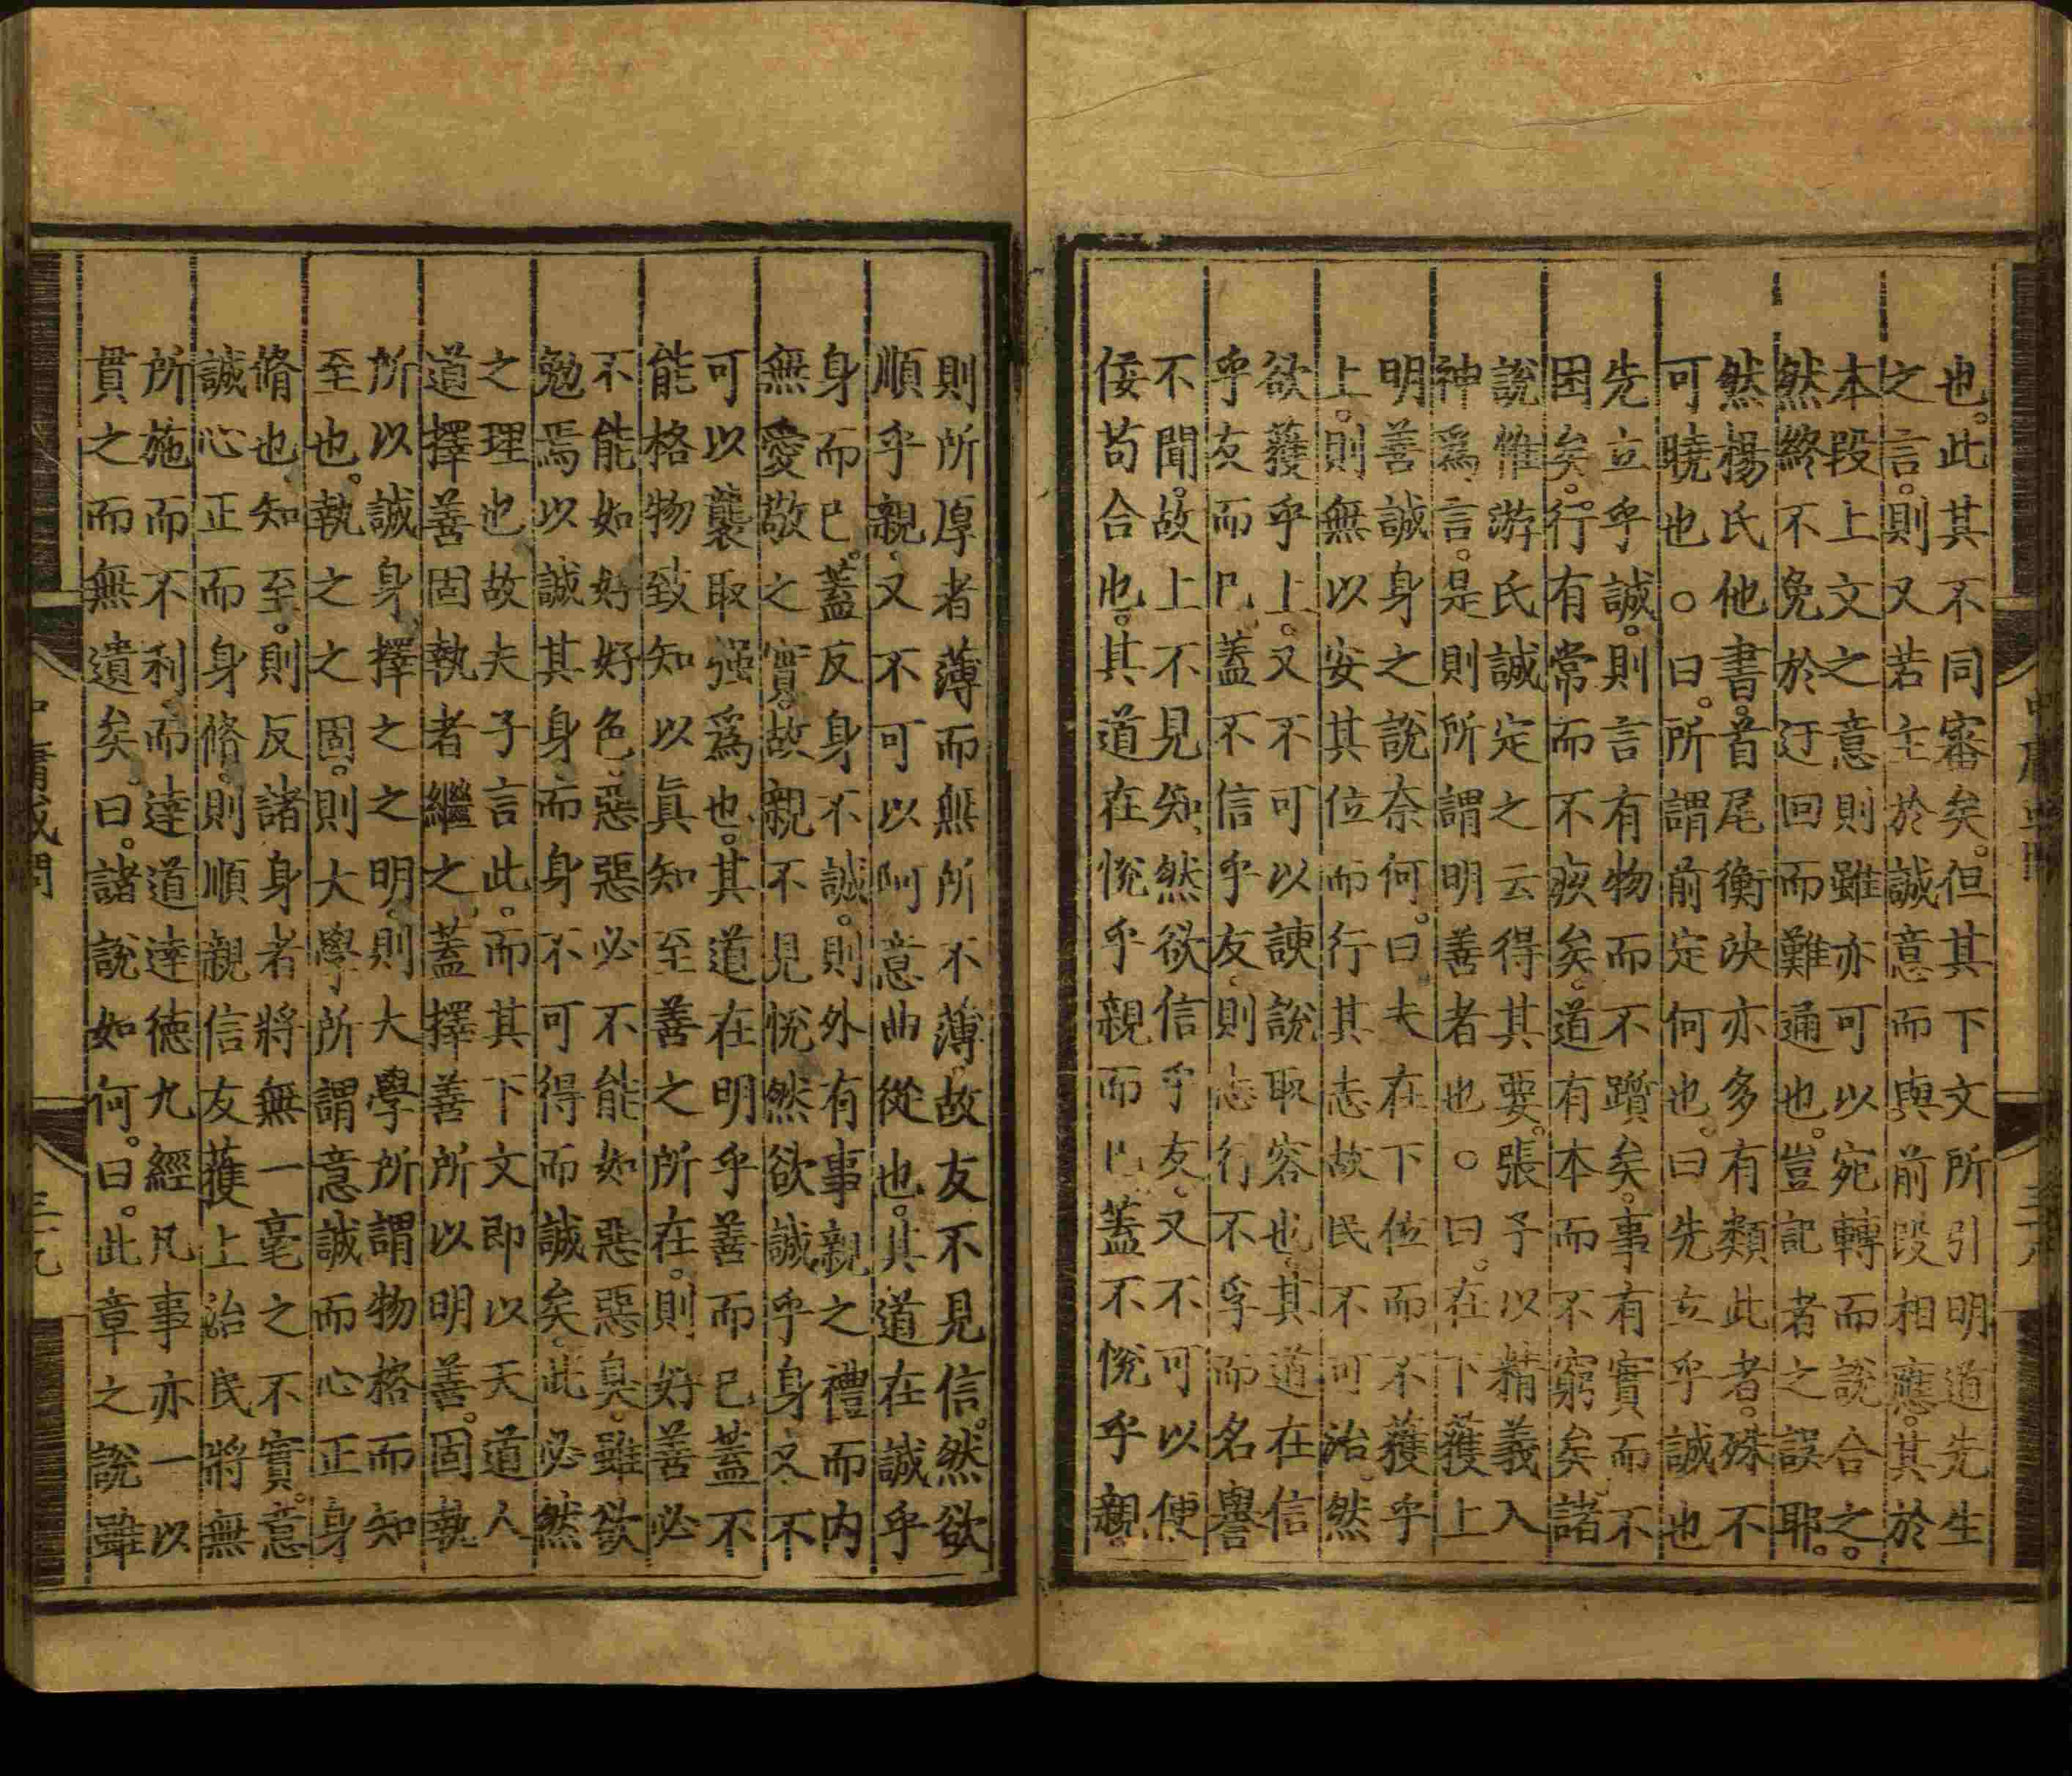 中庸或問
三十八
也。此其不同審矣。但其下文所引明道先生
之言。則又若主於誠意而與前段相應。其於
本段上文之意則雖亦可以宛轉而說合之。
然終不免於迂回而難通也。豈記者之誤耶。
然楊氏他書。首尾衡決亦多有類此者。殊不
可曉也。○曰。所謂前定何也。曰先立乎誠也
先立乎誠。則言有物而不躓矣。事有實而不
困矣。行有常而不疚矣。道有本而不窮矣。諸
說惟游氏誠定之云得其要。張子以精義入
神爲言。是則所謂明善者也。○曰。在下獲上
明善誠身之說奈何。曰夫在下位而不獲乎
上。則無以安其位而行其志故民不可治。然
欲獲乎上。又不可以諛說取容也。其道在信
乎友而已蓋不信乎友。則志行不孚而名譽
不聞。故上不見知。然欲信乎友。又不可以便
佞苟合也。其道在悅乎親而已蓋不悅乎親。
則所厚者薄而無所不薄。故友不見信。然欲
順乎親。又不可以阿意曲從也。其道在誠乎
身而已。蓋反身不誠。則外有事親之禮而內
無愛敬之實。故親不見悅然欲誠乎身又不
可以襲取强爲也。其道在明乎善而已蓋不
能格物致知以眞知至善之所在。則好善必
不能如好好色惡惡必不能如惡惡臭。雖欲
勉焉以誠其身而身不可得而誠矣。此必然
之理也故夫子言此。而其下文即以天道人
道擇善固執者繼之蓋擇善所以明善。固執
所以誠身擇之之明。則大學所謂物格而知
至也。執之之固。則大學所謂意誠而心正身
脩也。知至。則反諸身者將無一毫之不實。意
誠心正而身脩。則順親信友獲上治民將無
所施而不利。而達道達德九經凡事亦一以
貫之而無遺矣。曰。諸說如何。曰。此章之說雖
中庸或問
三十九